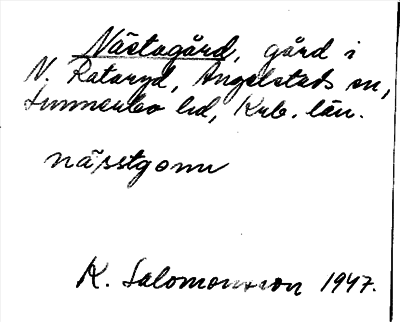 Nästagård, gård i
N. Rataryd, Angelstads sn,
Sunnerbo hd, Krb. län.
nässtgomr
K. Salomonsson 1947.